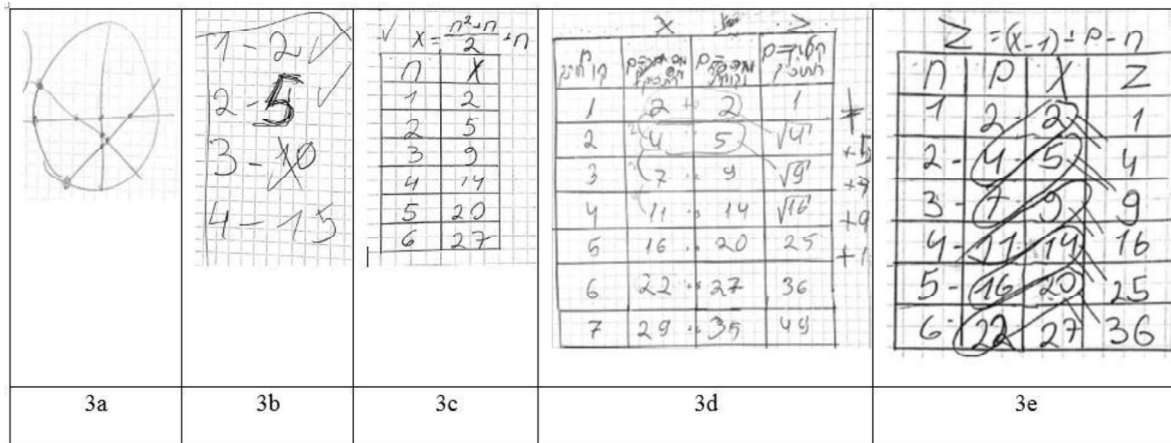 1 - 2 ✓
2 - 5 ✓
3 - 10
4 - 15
✓ X = n²+n/2 + n
n X
1 2
2 5
3 9
4 14
5 20
6 27
X
1 2 2 1
2 4 5 √4
3 7 9 √9
4 11 14 √16
5 16 20 25
6 22 27 36
7 29 35 49
+5
+7
+9
Z = (X-1) + P - n
n P X Z
1 2 2 1
2 - 4 - 5 4
3 - 7 - 9 9
4 - 11 14 16
5 - 16 20 25
6 - 22 27 36
3a 3b 3c 3d 3e